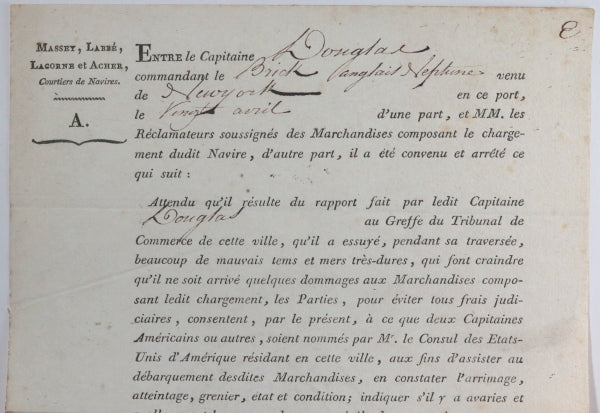 MASSEY, LABBÉ,
LACORNE et ACHER,
Courtiers de Navires.
A.
ENTRE le Capitaine Douglas
commandant le Brick anglais Neptune venu
de Newyork en ce port,
le Vingt avril d'une part, et MM. les
Réclamateurs soussignés des Marchandises composant le charge-
ment dudit Navire, d'autre part, il a été convenu et arrêté ce
qui suit :
Attendu qu'il résulte du rapport fait par ledit Capitaine
Douglas au Greffe du Tribunal de
Commerce de cette ville, qu'il a essuyé, pendant sa traversée,
beaucoup de mauvais tems et mers très-dures, qui font craindre
qu'il ne soit arrivé quelques dommages aux Marchandises compo-
sant ledit chargement, les Parties, pour éviter tous frais judi-
ciaires, consentent, par le présent, à ce que deux Capitaines
Américains ou autres, soient nommés par Mr. le Consul des Etats-
Unis d'Amérique résidant en cette ville, aux fins d'assister au
débarquement desdites Marchandises, en constater l'arrimage,
atteintage, grenier, etat et condition; indiquer s'il y a avaries et